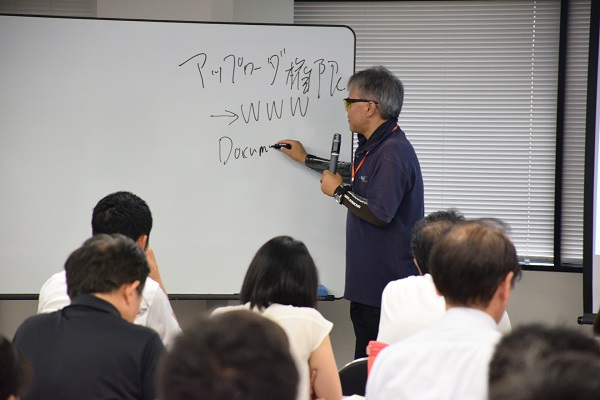 アップロード権限
→WWW
Docum